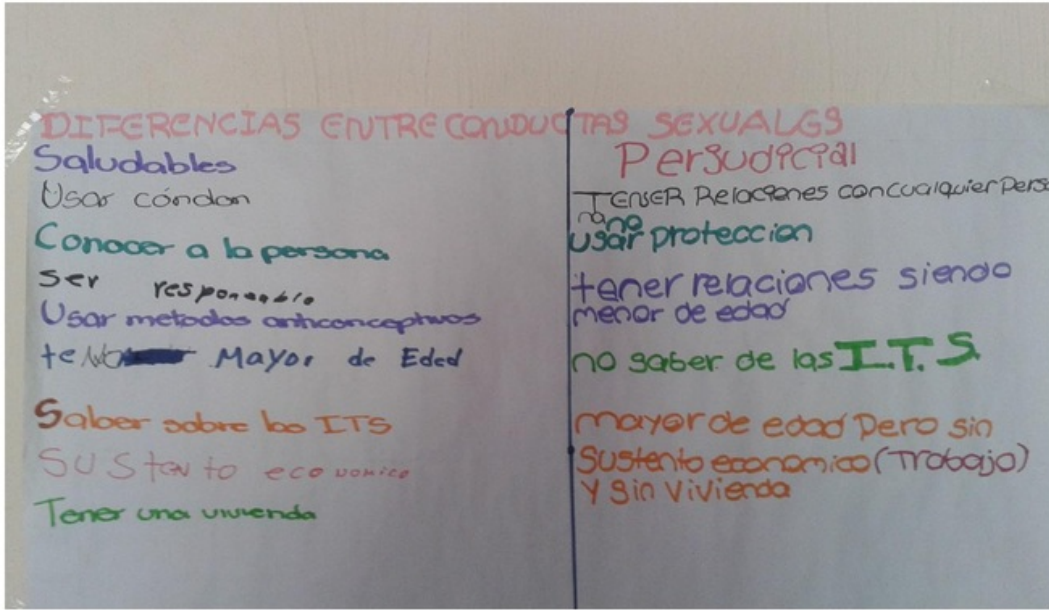 DIFERENCIAS ENTRE CONDUCTAS SEXUALES
Saludables
Usar cóndon
Conocer a la persona
ser responsable
Usar metodos anticonceptivos
Mayor de Eded
Saber sobre las ITS
Sustento economico
Tener una vivienda
Perjudicial
TENER Relaciones con cualquier Perso
na no
usar proteccion
tener relaciones siendo
menor de edad
no saber de las I.T.S.
mayor de edad Pero sin
Sustento economico (Trabajo)
Y Sin Vivienda